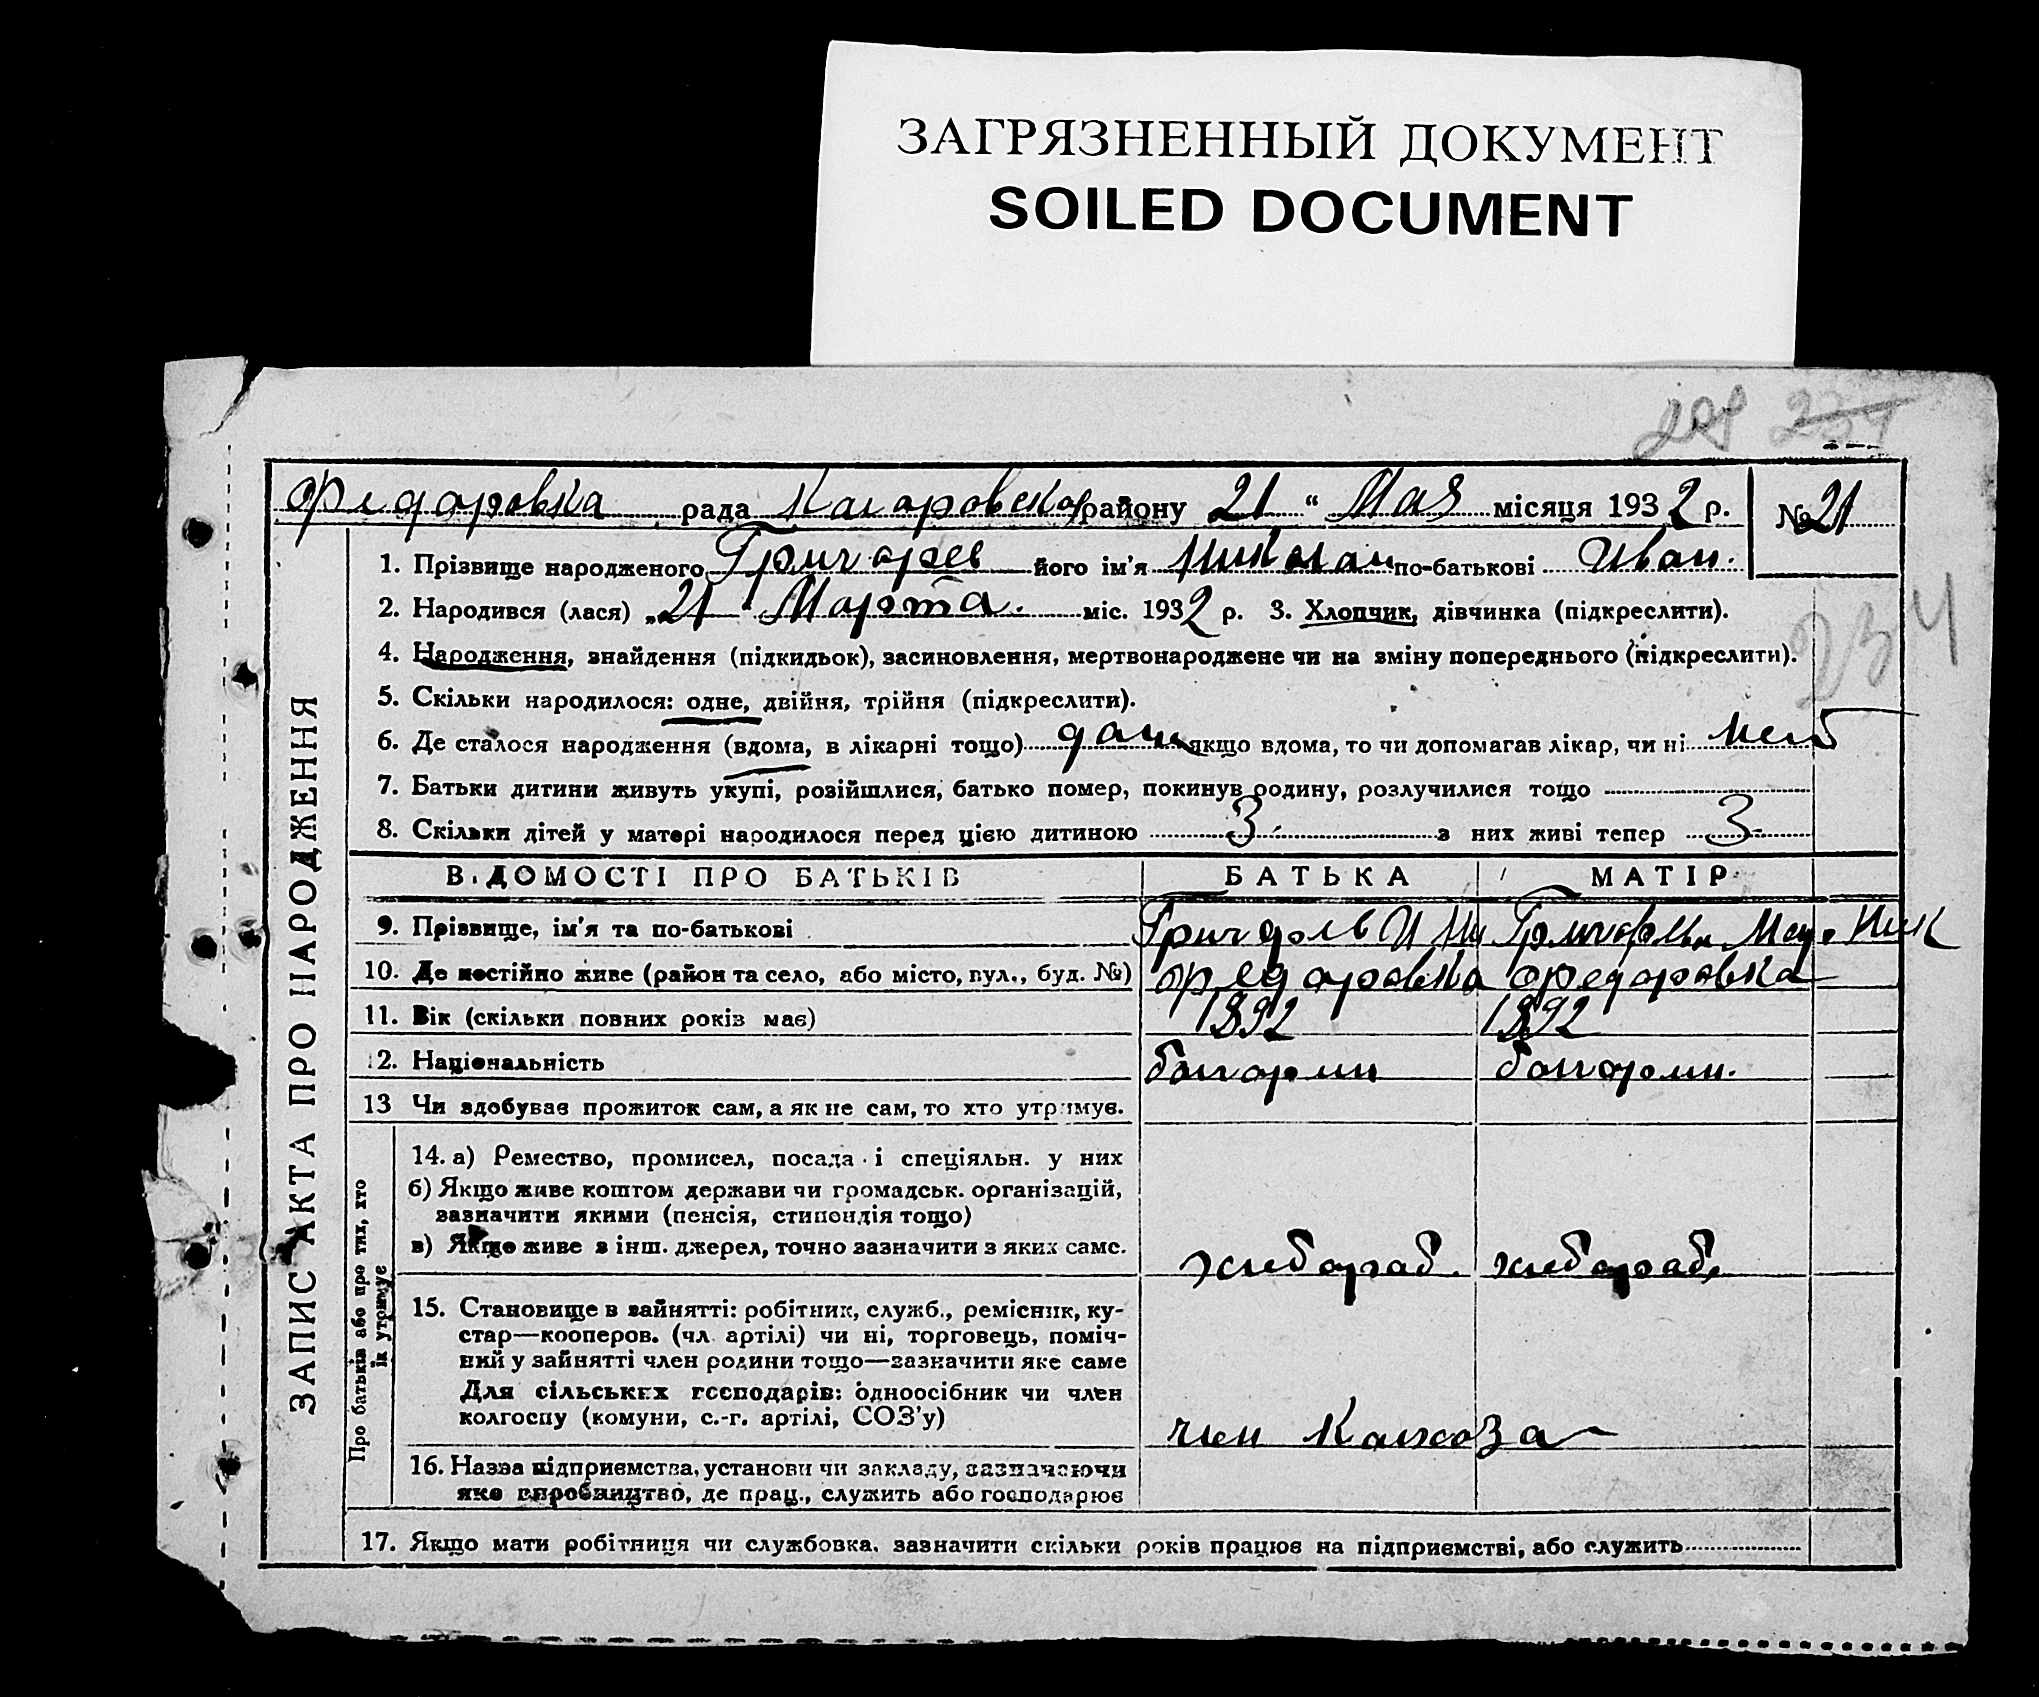 ЗАГРЯЗНЕННЫЙ ДОКУМЕНТ
SOILED DOCUMENT
234
Федоровка рада района району 21 " Мая місяця 1932 р. № 21
1. Прізвище народженого Григорев його ім'я Николай по-батькові Иван.
2. Народився (лася) „21 Марта. міс. 1932 р. 3. Хлопчик, дівчинка (підкреслити).
4. Народження, знайдення (підкидьок), засиновлення, мертвонароджене чи на зміну попереднього (підкреслити).
5. Скільки народилося: одне, двійня, трійня (підкреслити).
6. Де сталося народження (вдома, в лікарні тощо) дома якщо вдома, то чи допомагав лікар, чи ні нет
7. Батьки дитини живуть укупі, розійшлися, батько помер, покинув родину, розлучилися тощо
8. Скільки дітей у матері народилося перед цією дитиною 3 з них живі тепер 3
ВІДОМОСТІ ПРО БАТЬКІВ БАТЬКА МАТІР
9. Прізвище, ім'я та по-батькові
10. Де постійно живе (район та село, або місто, вул., буд. №) Федоровка Федоровка
11. Вік (скільки повних років має) 1892 1892
12. Національність болгарин болгарин.
13 Чи здобував прожиток сам, а як не сам, то хто утримує.
14. а) Ремество, промисел, посада і спеціяльн. у них
б) Якщо живе коштом держави чи громадськ. організацій,
зазначити якими (пенсія, стипендія тощо)
в) Якщо живе з інш. джерел, точно зазначити з яких саме. хлебороб. хлебороб.
15. Становище в зайнятті: робітник, служб., ремісник, ку-
стар—кооперов. (чл. артілі) чи ні, торговець, поміч-
ний у зайнятті член родини тощо—зазначити яке саме
Для сільських господарів: одноосібник чи член
колгоспу (комуни, с.-г. артілі, СОЗ'у) член Колхоза
16. Назва підприємства, установи чи закладу, зазначаючи
яке виробництво, де прац., служить або господарює
17. Якщо мати робітниця чи службовка, зазначити скільки років працює на підприємстві, або служить
ЗАПИС АКТА ПРО НАРОДЖЕННЯ
Про батьків або про тих, хто
їх утримує